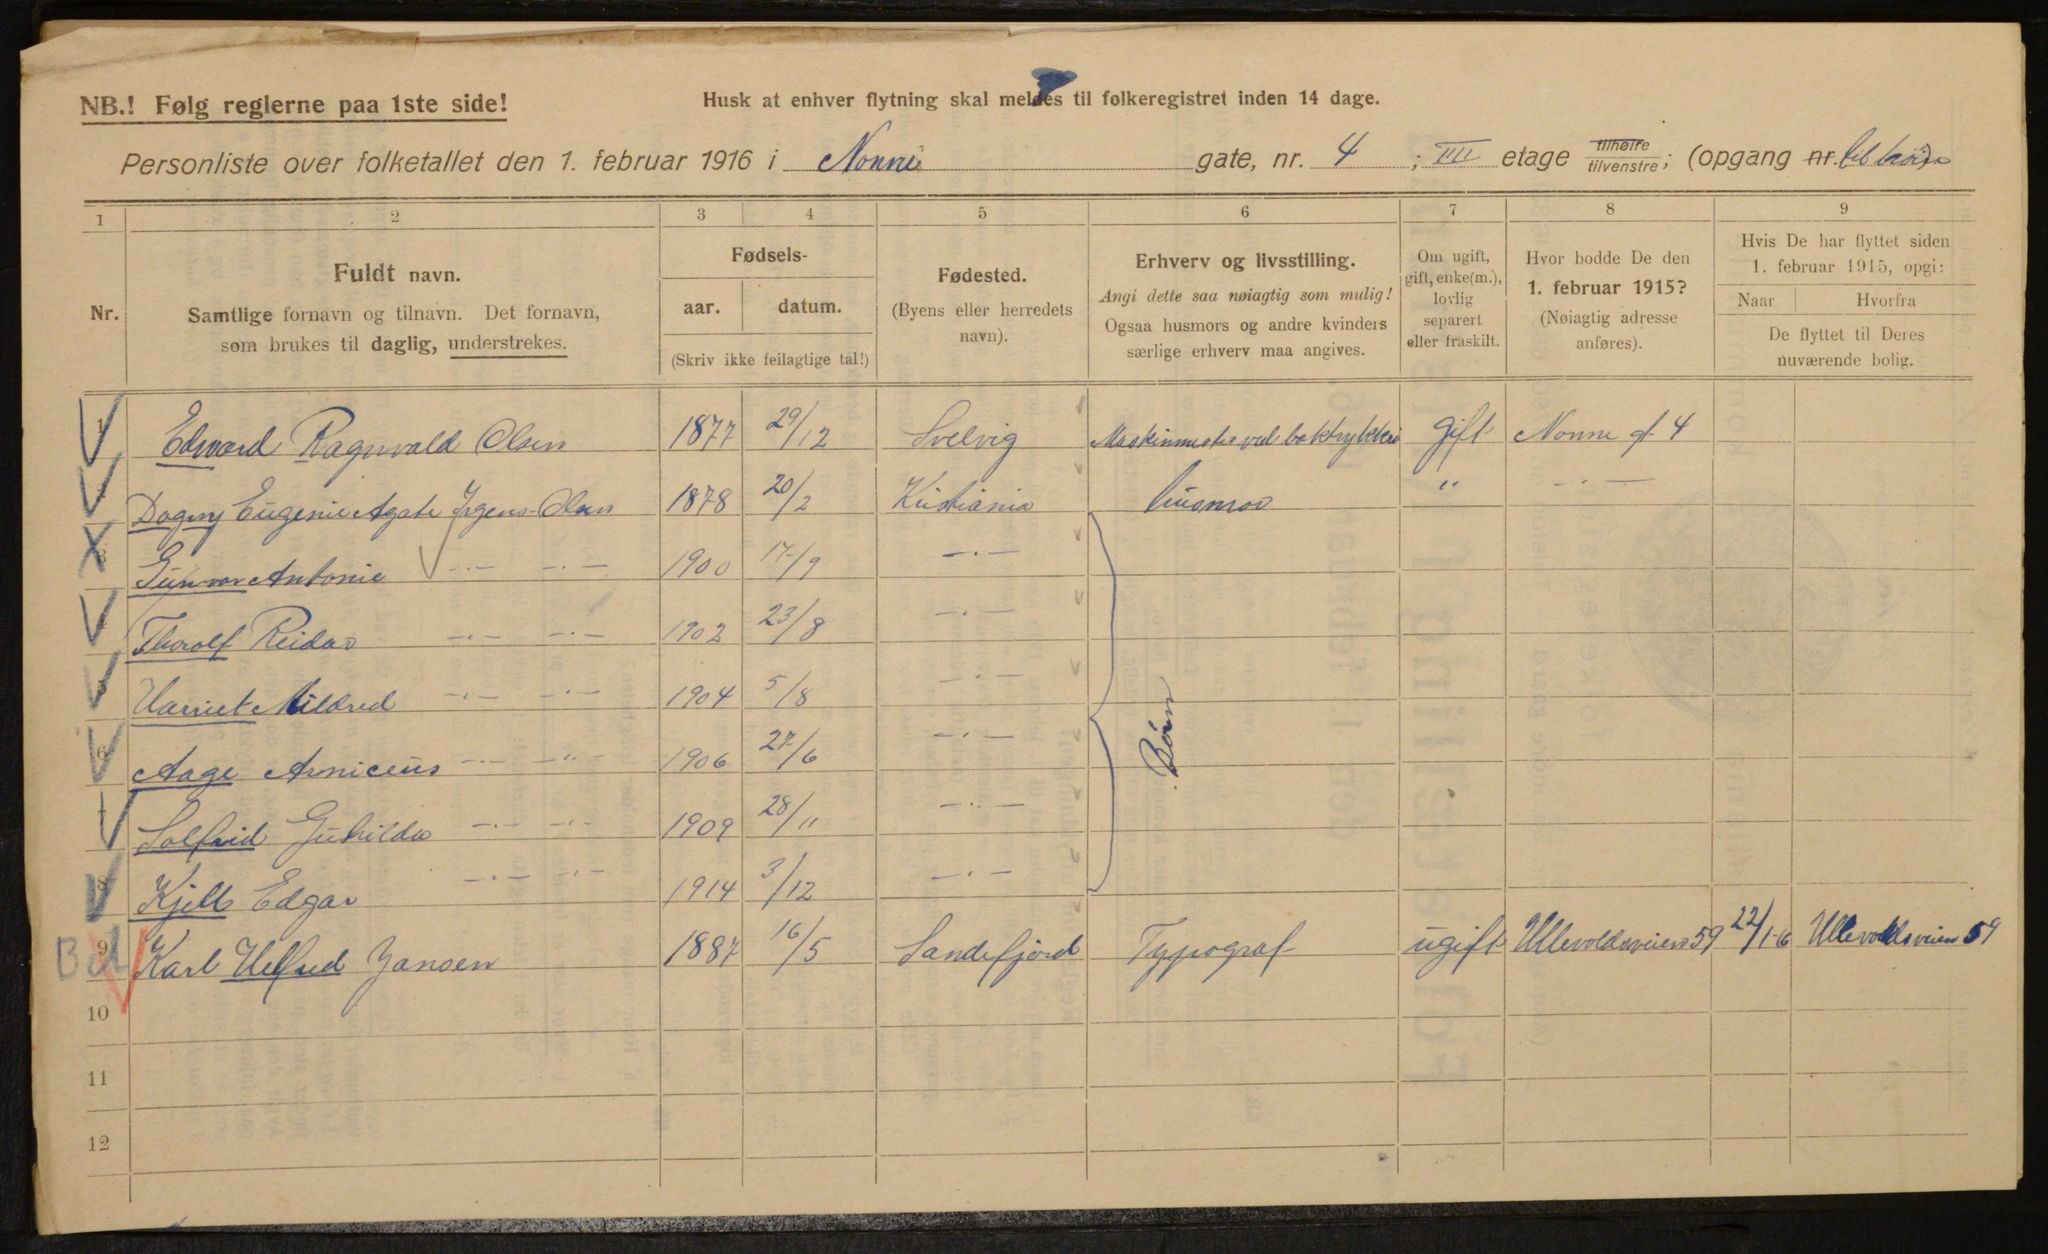 NB.! Følg reglerne paa 1ste side!
Husk at enhver flytning skal meldes til folkeregistret inden 14 dage.
Personliste over folketallet den 1. februar 1916 i Nonne gate, nr. 4 ; III etage tilhøire tilvenstre; (opgang nr. til høire)
1 2 3 4 5 6 7 8 9
Nr.
Fuldt navn.
Samtlige fornavn og tilnavn. Det fornavn,
som brukes til daglig, understrekes.
Fødsels-
aar. datum.
(Skriv ikke feilagtige tal!)
Fødested.
(Byens eller herredets
navn).
Erhverv og livsstilling.
Angi dette saa nøiagtig som mulig!
Ogsaa husmors og andre kvinders
særlige erhverv maa angives.
Om ugift,
gift, enke(m.),
lovlig
separert
eller fraskilt.
Hvor bodde De den
1. februar 1915?
(Nøiagtig adresse
anføres).
Hvis De har flyttet siden
1. februar 1915, opgi:
Naar Hvorfra
De flyttet til Deres
nuværende bolig.
1 Edvard Ragnvald Olsen 1877 29/12 Svelvig Maskinmester ved boktrykkeri gift Nonne gt 4
2 Dagny Eugenie Agate Irgens-Olsen 1878 20/2 Kristiania husmor " -"-
3 Gunvor Antonie -"- -"- 1900 17/9 -"-
4 Thorolf Reidar -"- -"- 1902 23/8 -"-
5 Harriet Mildred -"- -"- 1904 5/8 -"-
Børn
6 Aage Arniceus -"- -"- 1906 27/6 -"-
7 Solfrid Guhilda -"- -"- 1909 28/11 -"-
8 Kjell Edgar -"- -"- 1914 3/12 -"-
Bd 9 Karl Helfred Jansen 1887 16/5 Sandefjord Typograf ugift Ullevoldsveien 59 22/1-16 Ullevoldsveien 59
10
11
12